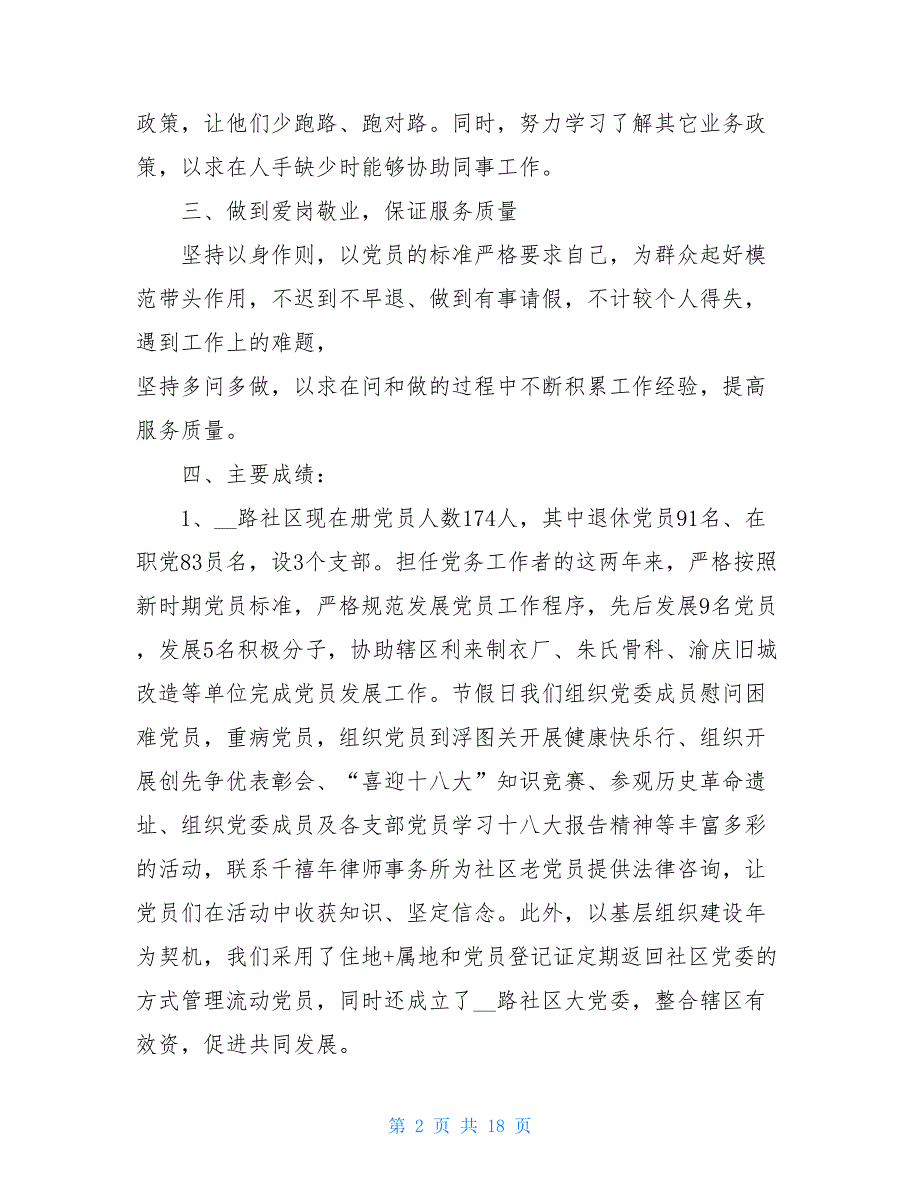 政策，让他们少跑路、跑对路。同时，努力学习了解其它业务政
策，以求在人手缺少时能够协助同事工作。
三、做到爱岗敬业，保证服务质量
坚持以身作则，以党员的标准严格要求自己，为群众起好模
范带头作用，不迟到不早退、做到有事请假，不计较个人得失，
遇到工作上的难题，
坚持多问多做，以求在问和做的过程中不断积累工作经验，提高
服务质量。
四、主要成绩：
1、__路社区现在册党员人数174人，其中退休党员91名、在
职党83员名，设3个支部。担任党务工作者的这两年来，严格按照
新时期党员标准，严格规范发展党员工作程序，先后发展9名党员
，发展5名积极分子，协助辖区利来制衣厂、朱氏骨科、渝庆旧城
改造等单位完成党员发展工作。节假日我们组织党委成员慰问困
难党员，重病党员，组织党员到浮图关开展健康快乐行、组织开
展创先争优表彰会、“喜迎十八大”知识竞赛、参观历史革命遗
址、组织党委成员及各支部党员学习十八大报告精神等丰富多彩
的活动，联系千禧年律师事务所为社区老党员提供法律咨询，让
党员们在活动中收获知识、坚定信念。此外，以基层组织建设年
为契机，我们采用了住地+属地和党员登记证定期返回社区党委的
方式管理流动党员，同时还成立了__路社区大党委，整合辖区有
效资，促进共同发展。
第 2 页 共 18 页